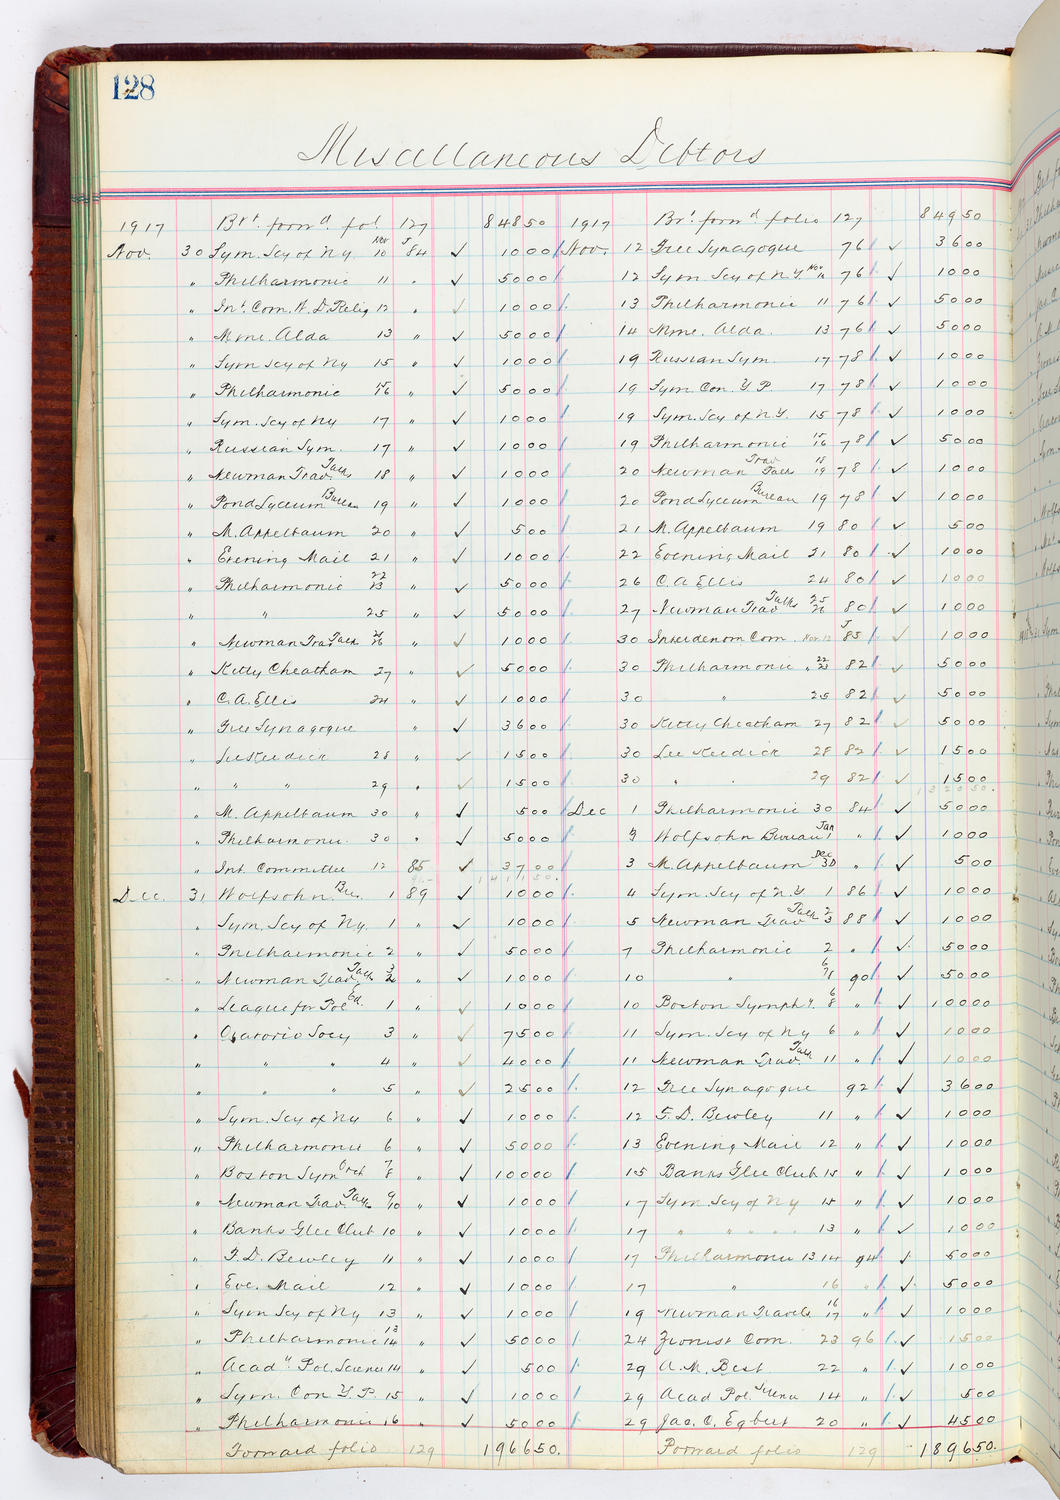 128
Miscellaneous Debtors
1917 Brt. forwd. fol. 127 84850 1917 Brt. forwd folio 127 84950
Nov. 30 Sym. Scy of N.y. Nov 10 J 84 ✓ 1000 Nov. 12 Free Synagogue 76 ✓ 3600
" Philharmonic 11 " ✓ 5000 12 Sym. Scy of N.Y. Nov 76 ✓ 1000
" Int. Com. 12 " ✓ 1000 13 Philharmonic 11 76 ✓ 5000
" Mme. Alda 13 " ✓ 5000 14 Mme. Alda. 13 76 ✓ 5000
" Sym Scy of Ny 15 " ✓ 1000 19 Russian Sym. 17 78 ✓ 1000
" Philharmonic 15 16 " ✓ 5000 19 Sym. Con. Y.P. 17 78 ✓ 1000
" Sym. Scy of Ny 17 " ✓ 1000 19 Sym. Scy of N.Y. 15 78 ✓ 1000
" Russian Sym. 17 " ✓ 1000 19 Philharmonic 15 16 78 ✓ 5000
" Newman Trav. Talks 18 " ✓ 1000 20 Newman Trav Talks 18 19 78 ✓ 1000
" Pond Lyceum Bureau 19 " ✓ 1000 20 Pond Lyceum Bureau 19 78 ✓ 1000
" M. Appelbaum 20 " ✓ 500 21 M. Appelbaum 19 80 ✓ 500
" Evening Mail 21 " ✓ 1000 22 Evening Mail 21 80 ✓ 1000
" Philharmonic 22 23 " ✓ 5000 26 C. A. Ellis 24 80 ✓ 1000
" " 25 " ✓ 5000 27 Newman Trav Talks 25 26 80 ✓ 1000
" Newman Trav Talk 26 " ✓ 1000 30 Interdenom Com. Nov. 12 J 85 ✓ 1000
" Kitty Cheatham 27 " ✓ 5000 30 Philharmonic " 22 23 82 ✓ 5000
" C. A. Ellis 24 " ✓ 1000 30 " 25 82 ✓ 5000
" Free Synagogue " ✓ 3600 30 Kitty Cheatham 27 82 ✓ 5000
" Lee Keedick 28 " ✓ 1500 30 Lee Keedick 28 82 ✓ 1500
" " " 29 " ✓ 1500 30 " " 29 82 ✓ 1500
132050.
" M. Appelbaum 30 " ✓ 500 Dec 1 Philharmonic 30 84 ✓ 5000
" Philharmonic. 30 " ✓ 5000 3 Wolfsohn Bureau Jan 1 " ✓ 1000
" Int. Committee 12 85 ✓ 3700 3 M. Appelbaum Dec 30 " ✓ 500
Dec. 31 Wolfsohn Bu. 1 89 ✓ 1000 4 Sym. Scy of N.Y 1 86 ✓ 1000
" Sym. Scy of Ny. 1 " ✓ 1000 5 Newman Trav Talk 2 3 88 ✓ 1000
" Philharmonic 2 " ✓ 5000 7 Philharmonic 2 " ✓ 5000
" Newman Trav. Talk " ✓ 1000 10 " 6 90 ✓ 5000
" League for Pol Ed. 1 " ✓ 1000 10 Boston Symphy. 6 8 " ✓ 10000
" Oratorio Socy 3 " ✓ 7500 11 Sym. Scy of Ny 6 " ✓ 1000
" " " 4 " ✓ 4000 11 Newman Trav. Talk 11 " ✓ 1000
" " " 5 ✓ 2500 12 Free Synagogue 92 ✓ 3600
" Sym. Scy of Ny 6 " ✓ 1000 12 F. D. Bewley 11 " ✓ 1000
" Philharmonic 6 " ✓ 5000 13 Evening Mail 12 " ✓ 1000
" Boston Sym Orch 7 8 " ✓ 10000 15 Banks Glee Club 15 " ✓ 1000
" Newman Trav. Talk 9 10 " ✓ 1000 17 Sym. Scy of Ny 15 " ✓ 1000
" Banks Glee Club 10 " ✓ 1000 17 " " " 13 " ✓ 1000
" F. D. Bewley 11 " ✓ 1000 17 Philharmonic 13 14 94 ✓ 5000
" Eve. Mail 12 " ✓ 1000 17 " 16 " ✓ 5000
" Sym Scy of Ny 13 " ✓ 1000 19 Newman Travels 16 17 " ✓ 1000
" Philharmonic 13 14 " ✓ 5000 24 Zionist Com. 23 96 ✓ 1500
" Acad " Pol. Science 14 " ✓ 500 29 A. M. Best 22 " ✓ 1000
" Sym. Con Y.P. 15 " ✓ 1000 29 Acad Pol. Science 14 " ✓ 500
" Philharmonic 16 " ✓ 5000 29 Jas. C. Egbert 20 " ✓ 4500
Forward folio 129 196650. Forward folio 129 189650.